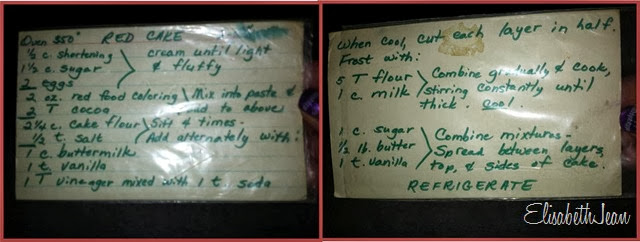 Oven 350° RED CAKE
1/2 c. shortening
1 1/2 c. sugar
2 eggs
cream until light
& fluffy
2 oz. red food coloring
2 T cocoa
Mix into paste &
add to above
2 1/4 c. cake flour
1/2 t. salt
Sift 4 times -
Add alternately with:
1 c buttermilk
1 t. vanilla
1 T vinegar mixed with 1 t. soda
When cool, cut each layer in half.
Frost with:
5 T flour
1 c. milk
Combine gradually & cook,
stirring constantly until
thick. Cool.
1 c. sugar
1/2 lb. butter
1 t. vanilla
Combine mixtures -
Spread between layers,
top, & sides of cake.
REFRIGERATE
ElisabethJean